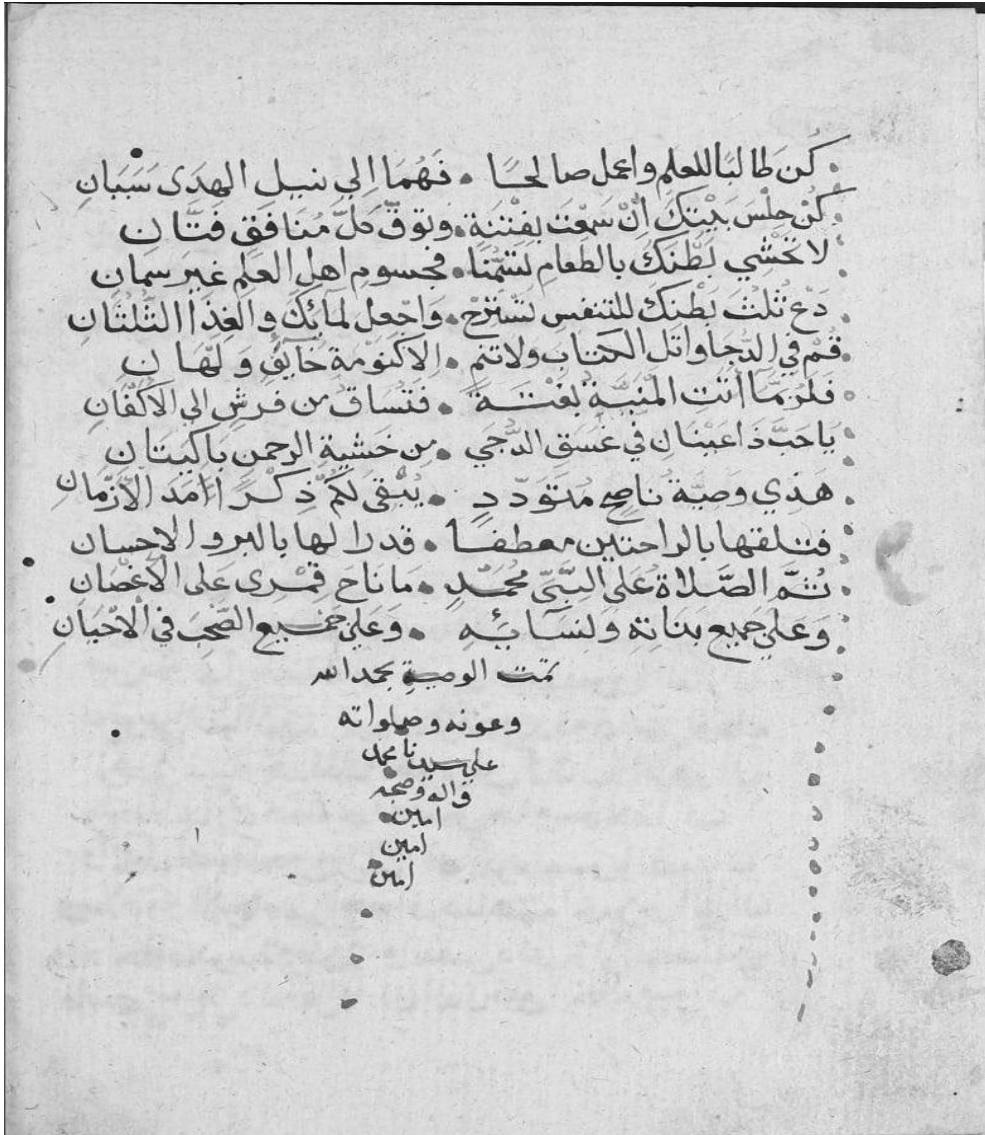 كُن طَالبًا للعلم واعمل صالحًا • فَهُمَا إلي نيل الهدَى سَبَبَانِ
كُنْ حِلْسَ بَيْتِكَ إنْ سَمِعْتَ بفِتْنَةٍ • وتوقّ كلّ مُنَافقٍ فتّان
لا تحْشي بَطْنَكَ بالطعامِ تسَمُّنًا • فجسوم اهل العلم غيرَ سمان
دَعْ ثُلثَ بَطْنِكَ للتنفس تَسْتَرِحْ • وَاجْعل لمَائِكَ والغِذَا الثّلثَانِ
قُمْ في الدُّجا واتل الكتابَ ولا تنم • الا كنومة خَايِفٍ وَلهَان
فَلَرُبَّمَا أتَتِ المَنيَّةُ بَغْتَةً • فَتُسَاقُ من فرُشٍ الي الأكْفَانِ
يَا حَبَّذَا عَيْنَانِ في غَسَقِ الدُّجي • مِن خَشيةِ الرحمن بَاكيَتَانِ
هَذي وَصيَّة ناصحٍ مُتوَدّدٍ • يَبْقى لكُمْ ذِكْرًا أمَدَ الأزْمَانِ
فتلقها بالراحتين معطفا • قدرا لها بالبر والاحسان
ثُمّ الصَّلاة عَلى النَّبيّ مُحَمّدٍ • مَا نَاحَ قمْرِي عَلى الأغْصَانِ
وَعلي جميع بَنَاتهِ ونسَائِهِ • وَعلي جَميع الصَّحْبِ في الأحْيَانِ
تمت الوصية بحمد الله
وعونه وصلواته
علي سيدنا محمد
واله وصحبه
امين
امين
امين